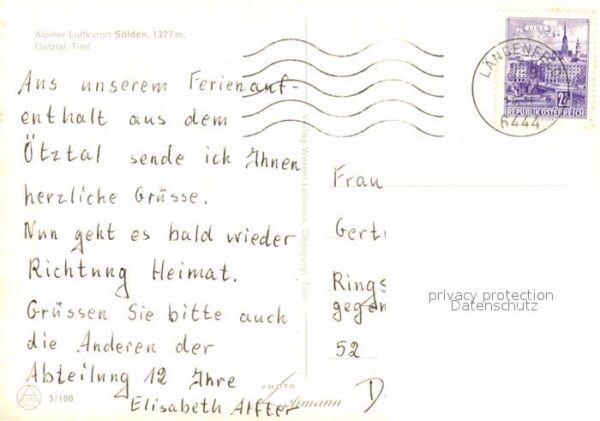 Alpiner Luftkurort Sölden, 1377 m,
Oetztal, Tirol
Aus unserem Ferienauf-
enthalt aus dem
Ötztal sende ich Ihnen
herzliche Grüsse.
Nun geht es bald wieder
Richtung Heimat.
Grüssen Sie bitte auch
die Anderen der
Abteilung 12 Ihre
Elisabeth Alfter
3/100
PHOTO
Lohmann
Verlag Werner Lohmann, Obergurgl, Tirol
LÄNGENFE
6444
LINZ
REPUBLIK ÖSTERREICH
Frau
Gert
Rings
gegen
52
D
privacy protection
Datenschutz